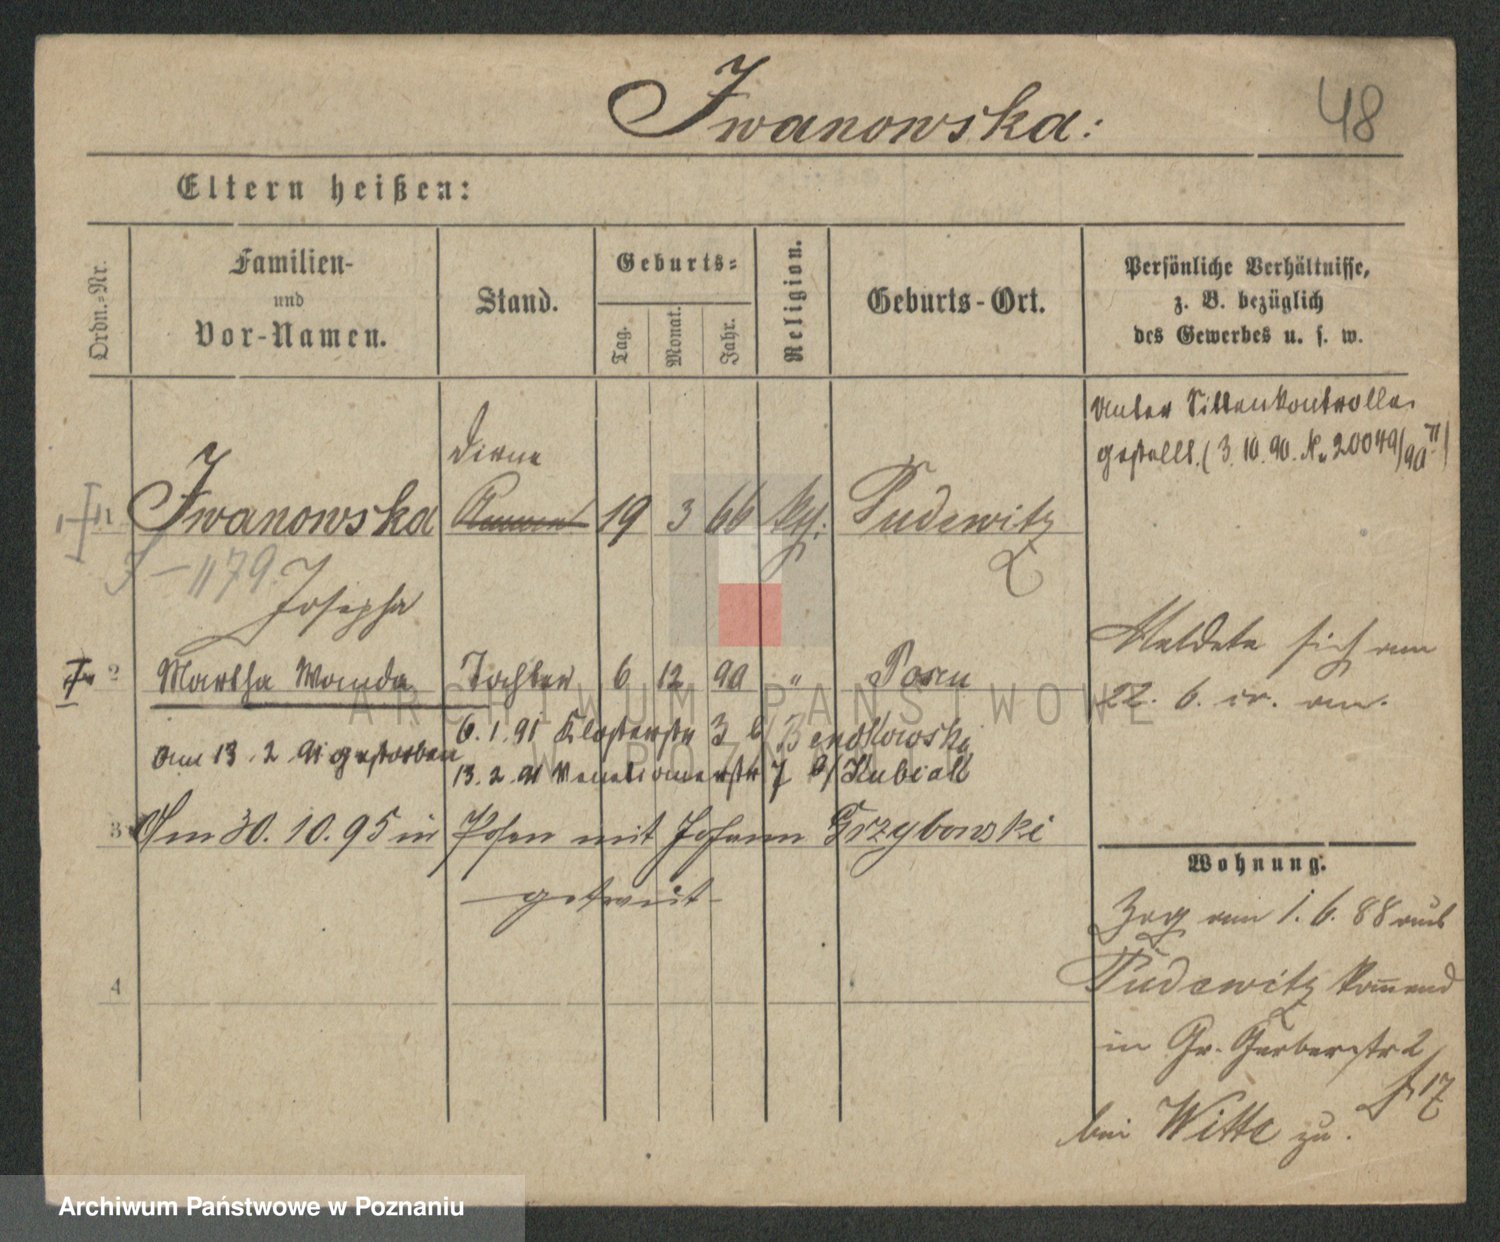 Iwanowska:
48
Eltern heißen:
Ordn.=Nr.
Familien-
und
Vor-Namen.
Stand.
Geburts=
Tag.
Monat.
Jahr.
Religion.
Geburts-Ort.
Persönliche Verhältnisse,
z. B. bezüglich
des Gewerbes u. s. w.
Unter Sittenkontrolle
gestellt. (3. 10. 90. No 20049/90 II)
Dirne
1 Iwanowska 19 3 66 kth: Pudewitz
J-1179.
Josepha
2 Martha Wanda Tochter 6 12 90 " Posen
Meldete sich am
22. 6. cr. an.
6. 1. 91 Klosterstr 3 b/ Bendkowski
am 13. 2. 91 gestorben
13. 2. 91 Venetianerstr 7 b/ Kubiak
3 Am 30. 10. 95 in Posen mit Johann Grzybowski
getraut-
Wohnung.
Zog am 1. 6. 88 aus
Pudewitz kommend
4
in Gr. Gerberstr 2
17
bei Witte zu.
ARCHIWUM PAŃSTWOWE
W POZNANIU
Archiwum Państwowe w Poznaniu